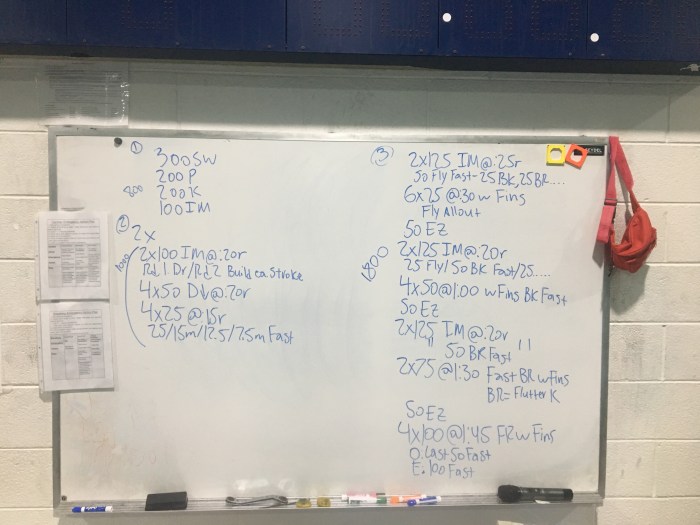 ①
300SW
200P
800
200K
100IM
②
2x
1000
2x100 IM@:20r
Rd. 1 Dr/Rd.2 Build ea Stroke
4x50 D↓@:20r
4x25 @15r
25/15m/12.5/7.5m Fast
③
2x125 IM@:25r
50 Fly Fast-25 BK, 25 BR....
6x25 @30 w Fins
Fly Allout
50 EZ
1800
2x125 IM@:20r
25 Fly/50 BK Fast/25.....
4x50@1:00 w Fins BK Fast
50 EZ
2x125 IM@:20r
" 50 BR Fast "
2x75@1:30 Fast BR w Fins
BR=Flutter K
50 EZ
4x100@1:45 FR w Fins
O: Last 50 Fast
E: 100 Fast